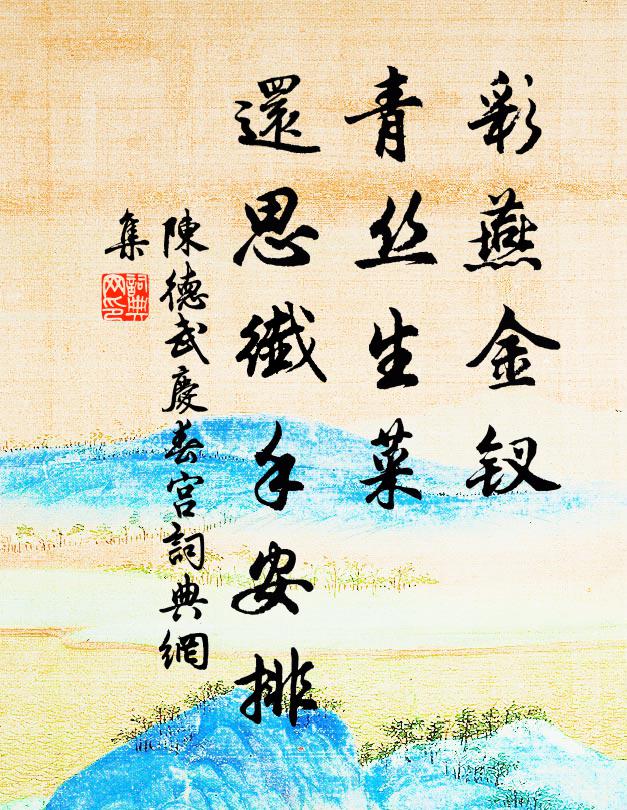 彩燕金钗
青丝生菜
還思纖手安排
陳德武慶春宮詞典網
集
詞典網印